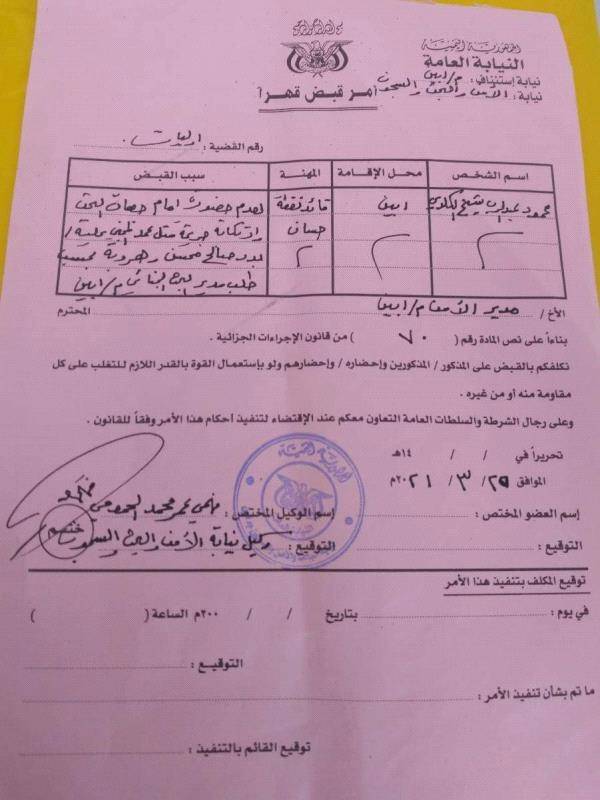 الجمهورية اليمنية
النيابة العامة
نيابة إستئناف : م/ابين
نيابة : الأمن والبحث والسجون
أمر قبض قهرا
رقم القضية :
اسم الشخص محل الإقامة المهنة سبب القبض
محمود عبدالله شيخ ابين قائد نقطة لعدم حضوره امام جهات البحث
حسان
طلب مدير البحث الجنائي م/ابين
الأخ / مدير الأمن م/ابين المحترم
بناءاً على نص المادة رقم ( ٧٠ ) من قانون الإجراءات الجزائية .
نكلفكم بالقبض على المذكور / المذكورين وإحضاره / وإحضارهم ولو بإستعمال القوة بالقدر اللازم للتغلب على كل
مقاومة منه أو من غيره .
وعلى رجال الشرطة والسلطات العامة التعاون معكم عند الإقتضاء لتنفيذ أحكام هذا الأمر وفقاً للقانون .
تحريراً في / / ١٤هـ
الموافق ٢٥ / ٣ / ٢٠٢١م
إسم العضو المختص : إسم الوكيل المختص : عمر محمد
التوقيع : التوقيع : وكيل نيابة الأمن والبحث والسجون
ختم
توقيع المكلف بتنفيذ هذا الأمر
في يوم : بتاريخ / / ٢٠٠م الساعة ( )
التوقيع :
ما تم بشأن تنفيذ الأمر :
توقيع القائم بالتنفيذ :